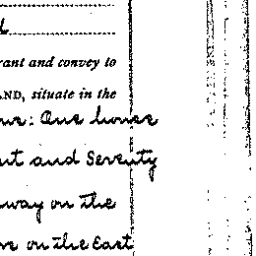 rant and convey to
AND, situate in the
One house
and Seventy
way on the
on the East